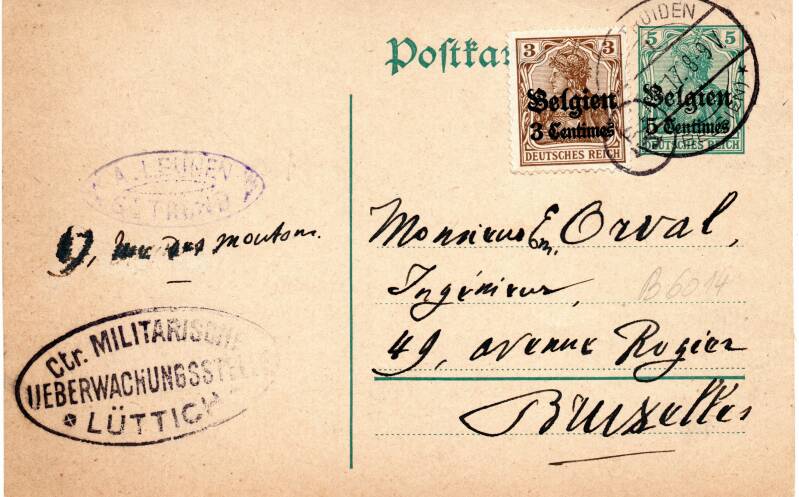 Postkar
3 3
Belgien
3 Centimes
DEUTSCHES REICH
5 5
Belgien
5 Centimes
DEUTSCHES REICH
TRUIDEN
17. 8-9 V.
A. LEUNEN
ST TROND
rue des moutons.
Ctr. MILITARISCHE
UEBERWACHUNGSSTELLE
LÜTTICH
Monsieur Em. Orval,
Ingénieur,
B6014
49, avenue Rogier
Bruxelles